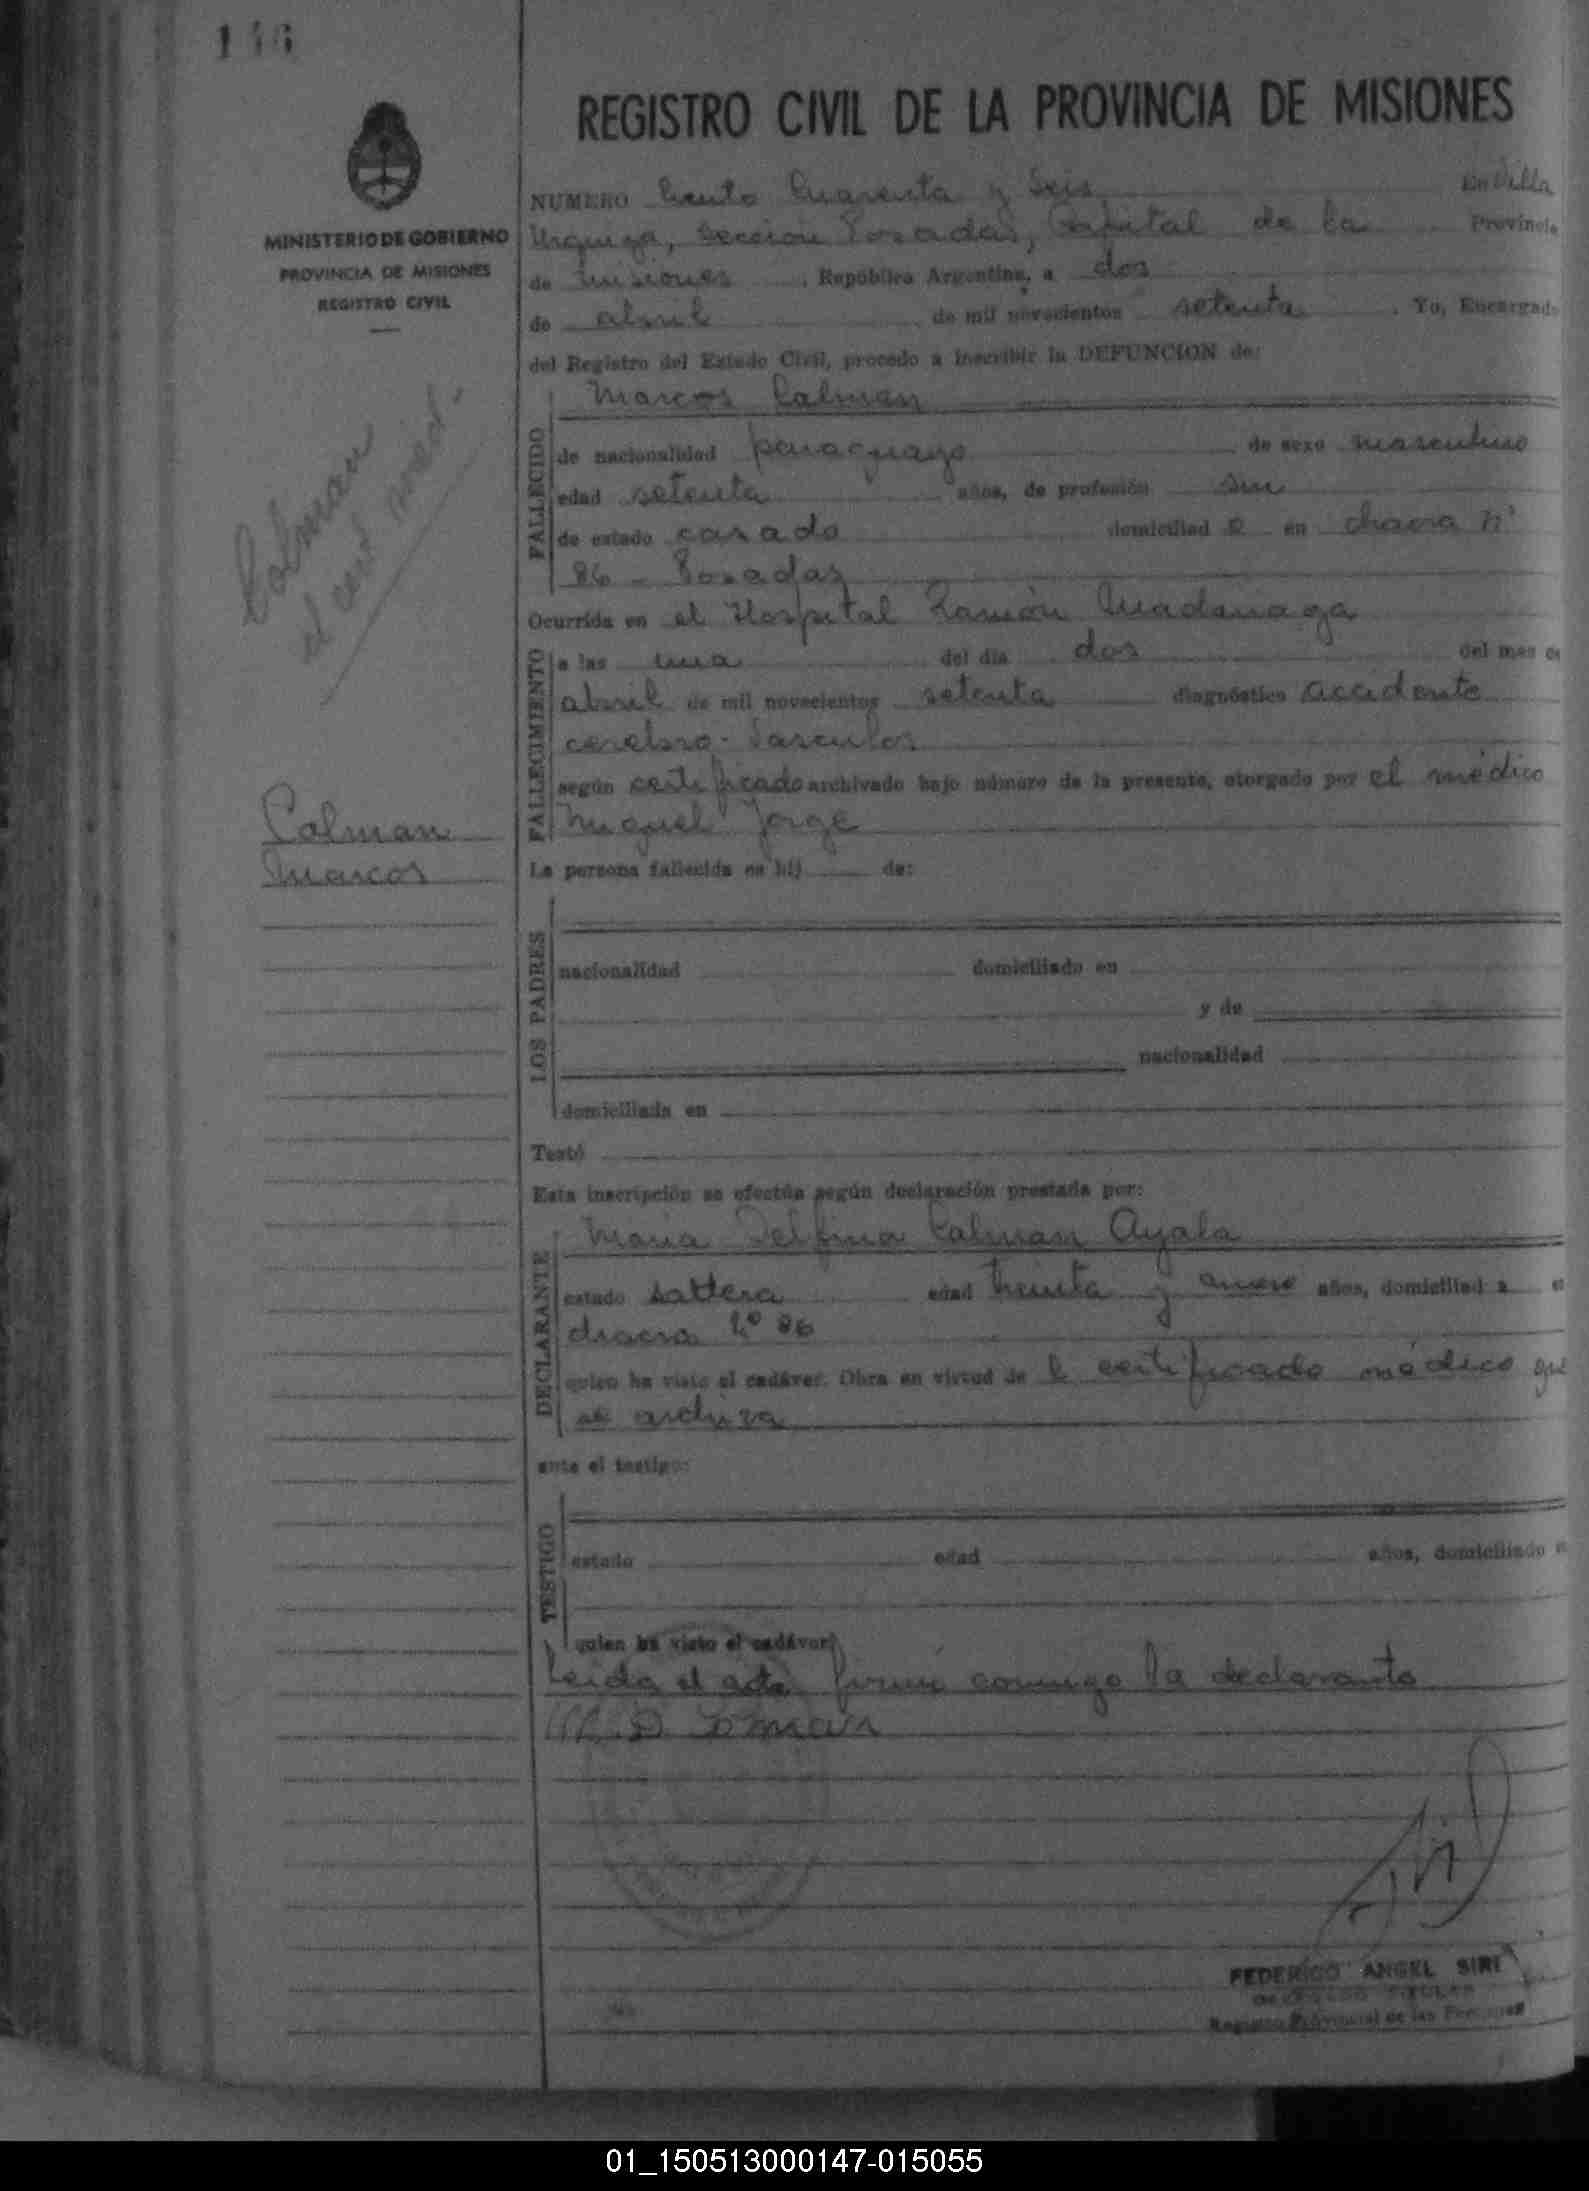 146
REGISTRO CIVIL DE LA PROVINCIA DE MISIONES
MINISTERIO DE GOBIERNO
PROVINCIA DE MISIONES
REGISTRO CIVIL
NUMERO Ciento Cuarenta y Seis En Villa
Urquiza, Sección Posadas, Capital de la Provincia
de Misiones, República Argentina, a dos
de abril de mil novecientos setenta. Yo, Encargado
del Registro del Estado Civil, procedo a inscribir la DEFUNCION de:
FALLECIDO
Marcos Colman
de nacionalidad paraguayo de sexo masculino
edad setenta años, de profesión sin
de estado casado domiciliad o en chacra Nº
86 - Posadas
Colman
el cert med.-
Ocurrida en el Hospital Ramón Madariaga
FALLECIMIENTO
a las una del día dos del mes de
abril de mil novecientos setenta diagnóstico accidente
cerebro-vascular
según certificado archivado bajo número de la presente, otorgado por el médico
Miguel Jorge
Colman
Marcos
La persona fallecida es hij de:
LOS PADRES
nacionalidad domiciliado en
y de
nacionalidad
domiciliada en
Testó
Esta inscripción se efectúa según declaración prestada por:
DECLARANTE
Maria Delfina Colman Ayala
estado soltera edad treinta y años, domiciliad a
chacra Nº 86
quien ha visto el cadáver. Obra en virtud de l certificado médico que
se archiva
ante el testigo:
TESTIGO
estado edad años, domiciliado
quien ha visto el cadáver
Leida el acta firmó conmigo la declarante
M. D Colmán
FEDERICO ANGEL SIRI
DELEGADO TITULAR
Registro Provincial de las Personas
01_150513000147-015055